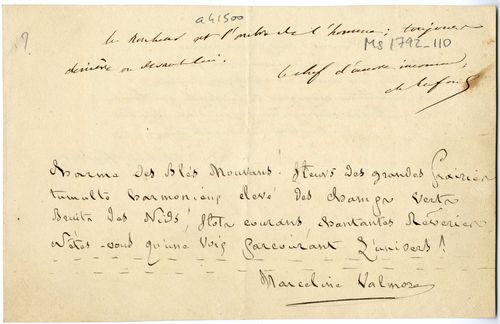 9.
a41500
Ms 1792-110
le bonheur est l'ombre de l'homme; toujours
derrière ou devant lui.
le chef d'œuvre inconnu;
Charme des blés mouvans! fleurs des grandes Prairies
tumulte harmonieux elevé des champs verts
Bruits des Nids! flots courans, chantantes Rêveries
N'êtes-vous qu'une Voix parcourant L'univers?
Marceline Valmore